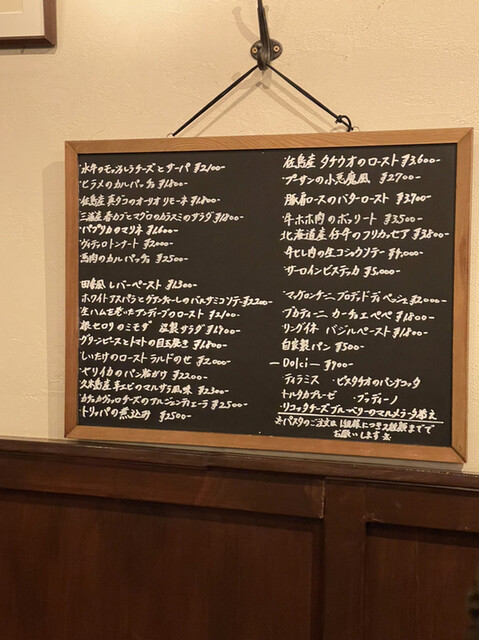 ・水牛のモッツァレラチーズとサーパ ¥2,100-
・ヒラメのカルパッチョ ¥1,800-
・佐島産 真ダコのオーリオリモーネ ¥1,800-
・三浦産 春カブとマグロのカラスミのサラダ ¥1,800-
・パプリカのマリネ ¥1,600-
・ヴィテッロトンナート ¥2,000-
・馬肉のカルパッチョ ¥2,500-
田舎風 レバーペースト ¥1,300-
ホワイトアスパラと のバルサミコソテー ¥2,200-
・生ハムを巻いたアンディーブのロースト ¥2,100-
・根セロリのミモザ 燻製サラダ ¥1,900-
・グリーンピースとトマトの目玉焼き ¥1,800-
・しいたけのロースト ラルドのせ ¥2,000-
・ヤリイカのパン粉がけ ¥2,200-
・久米島産 車エビのマルサラ風味 ¥2,300-
・カチョカヴァロチーズのアルジェンティエーラ ¥2,500-
・トリッパの煮込み ¥2,500-
・佐島産 タチウオのロースト ¥3,600-
・プーサンの小悪魔風 ¥2,700-
・豚肩ロースのバターロースト ¥3,900-
・牛ホホ肉のボッリート ¥3,500-
北海道産 仔牛のフリカッセア ¥3,800-
・牛ヒレ肉の生コショウソテー ¥4,000-
・サーロインビステッカ ¥5,000-
・マッケロンチーニ ブロデッド ディ ペッシェ ¥2,000-
・ブカティーニ カーチョエペペ ¥1,800-
・リングイネ バジルペースト ¥1,800-
・自家製パン ¥500-
-Dolci- ¥900-
・ティラミス ・ピスタチオのパンナコッタ
・トルタカプレーゼ ・ブディーノ
・リコッタチーズ ブルーベリーのマルメラータ添え
※パスタのご注文は1組様につき2種類までで
お願いします※